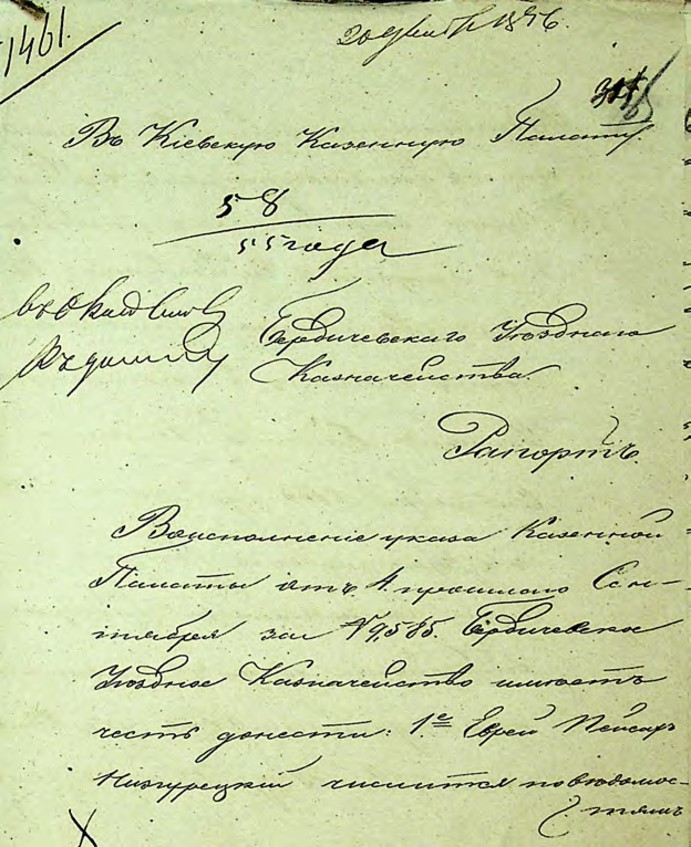 1461.
20 1856.
Въ Кіевскую Казенную Палату.
58
55 года
Бердичевскаго Уѣзднаго
Казначейства.
Рапортъ.
Воисполненіе указа Казенной
Палаты отъ 4. прошлаго Сен-
тября за № 9,585. Бердичевское
Уѣздное Казначейство имѣетъ
честь донести: 1е Еврей Пейсахъ
числится по вѣдомос-
тямъ